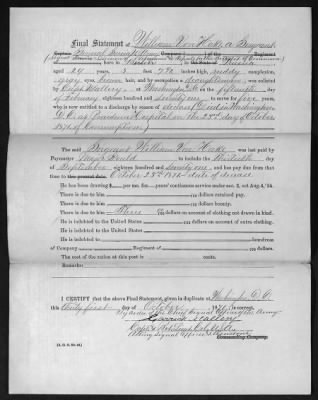 Final Statement of William Von Hake a Sergeant
born in Berlin in the State of Prussia
aged 24 years, 5 feet 7¾ inches high, ruddy complexion,
gray eyes, brown hair, and by occupation a was enlisted
by at Washington D.C. on the fifteenth day
of February eighteen hundred and seventy one to serve five years,
who is now entitled to a discharge by reason of
D.C. at Providence Hospital on the 23rd day of October
1871 of Consumption)
The said Sergeant William Von Hake was last paid by
Paymaster Major to include the thirtieth day
of September eighteen hundred and seventy one, and has pay due from that
time to the present date. October 23rd 1871 date of decease
He has been drawing $ per mo. for years' continuous service under sec. 2, act Aug. 4, '54.
There is due to him dollars retained pay.
There is due to him dollars bounty.
There is due to him Three dollars on account of clothing not drawn in kind.
He is indebted to the United States dollars on account of extra clothing.
He is indebted to the United States
He is indebted to laundress
of Company Regiment of dollars.
The cost of the ration at this post is cents.
Remarks:
I CERTIFY that the above Final Statement, given in duplicate at Washington D.C.
this thirty first day of October 1871, is correct.
By order of the Chief Signal Officer of the Army
Garrick Mallery
Acting Signal Officer
Commanding Company.